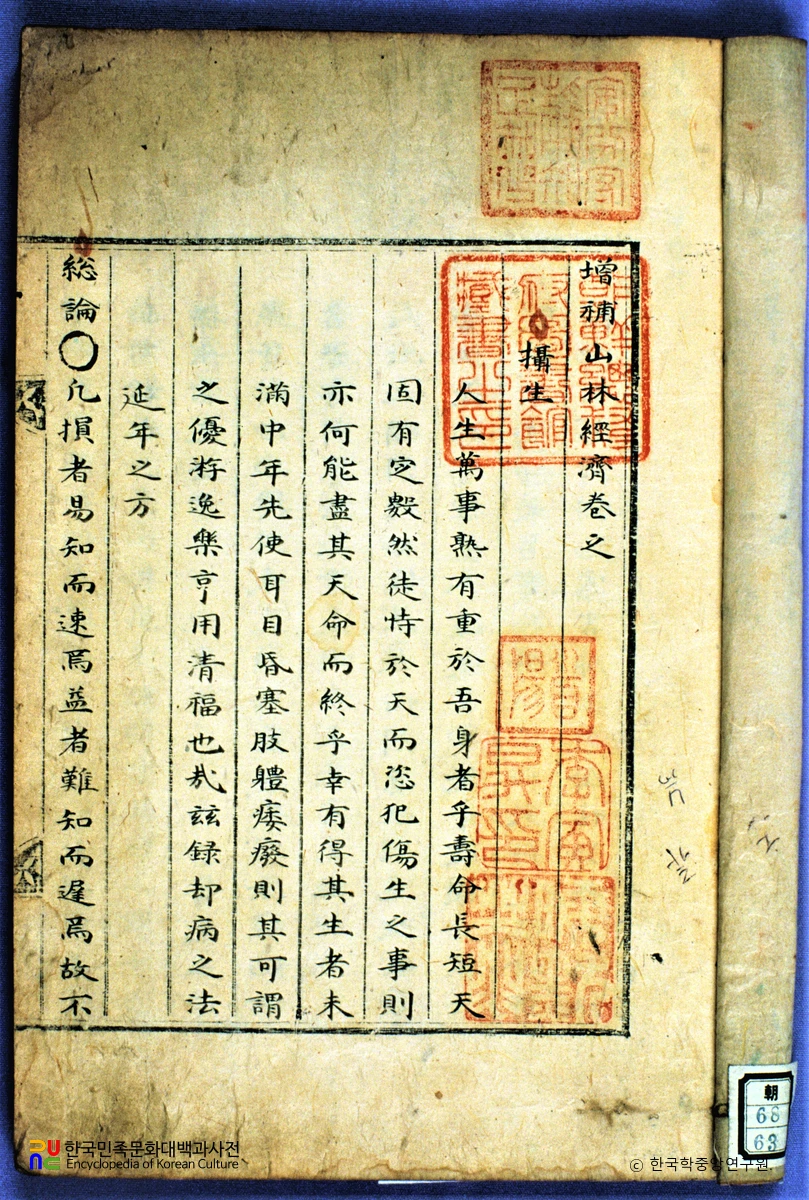 增補山林經濟卷之
攝生
人生萬事熟有重於吾身者乎壽命長短天
固有定數然徒恃於天而恣犯傷生之事則
亦何能盡其天命而終乎幸有得其生者未
滿中年先使耳目昏塞肢體痿廢則其可謂
之優游逸樂享用清福也哉玆録却病之法
延年之方
総論○凡損者易知而速焉益者難知而遲焉故不
朝
68
63
한국민족문화대백과사전
Encyclopedia of Korean Culture
© 한국학중앙연구원